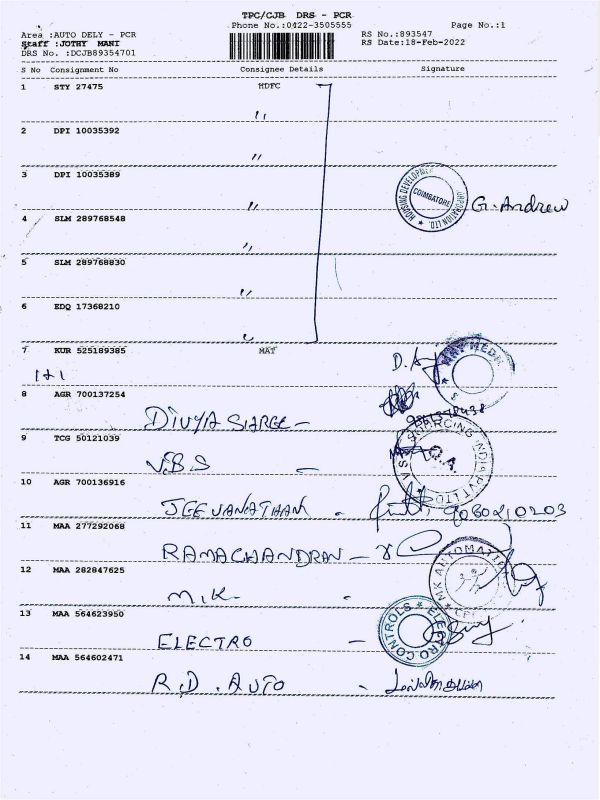 TPC/CJB DRS - PCR
Phone No.:0422-3505555 Page No.:1
Area :AUTO DELY - PCR
Staff :JOTHY MANI
DRS No. :DCJB89354701
RS No.:893547
RS Date:18-Feb-2022
S No Consignment No Consignee Details Signature
1 STY 27475 HDFC
2 DPI 10035392 〃
3 DPI 10035389 〃
HOUSING DEVELOPMENT CORPORATION LTD. COIMBATORE
G. Andrew
4 SLM 289768548 〃
5 SLM 289768830 〃
6 EDQ 17368210 〃
7 KUR 525189385 MAT
8 AGR 700137254
DIVYA SHREE -
9 TCG 50121039
V.B.S -
SOURCING INDIA PVT LTD
Q.A.
10 AGR 700136916
JEEVANATHAN - 9080210203
11 MAA 277292068
RAMACHANDRAN -
12 MAA 282847625
M.K. -
MK AUTOMATI
13 MAA 564623950
ELECTRO -
ELECTRO CONTROLS
14 MAA 564602471
R.D. AUTO -